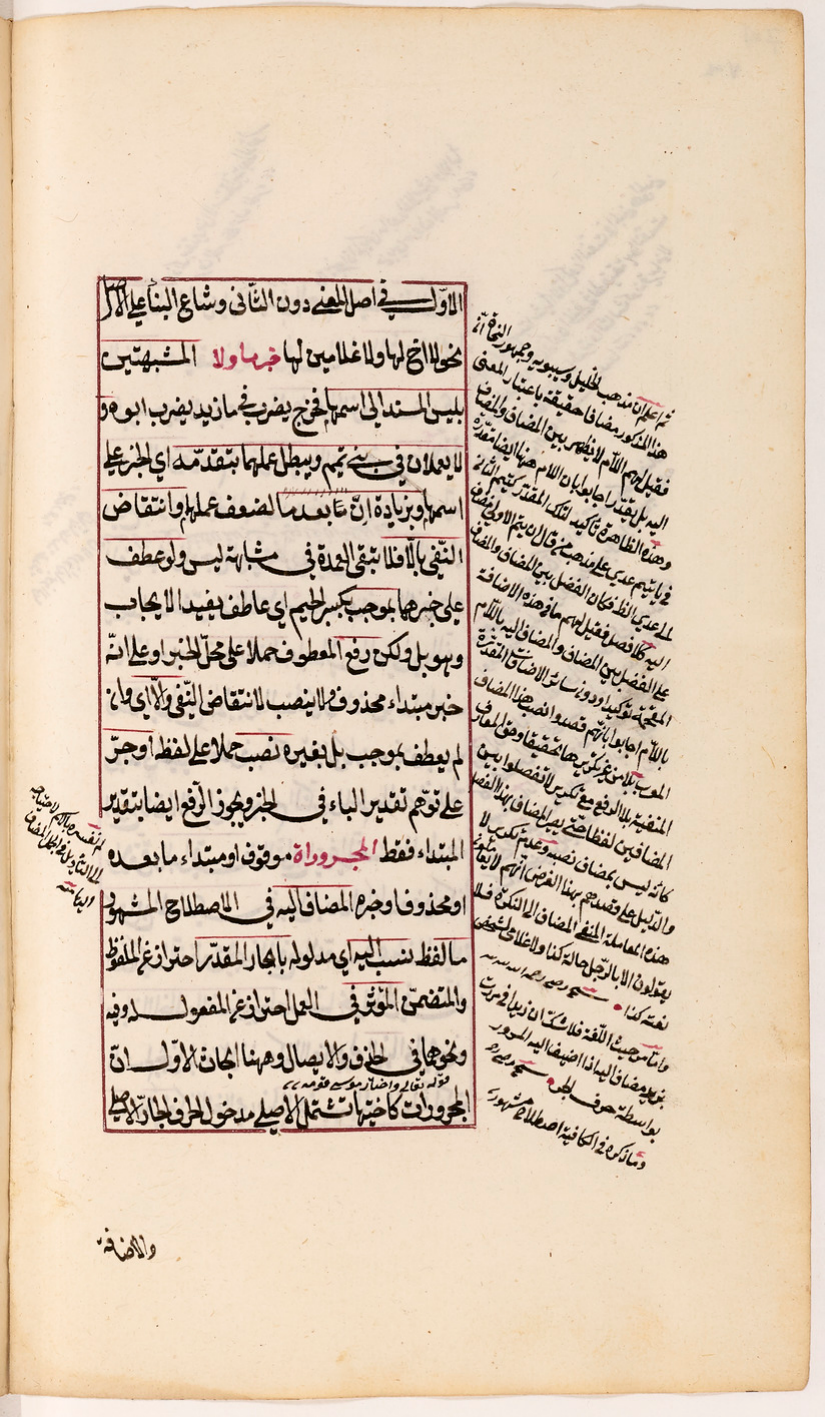 الاول في اصل المعنى دون الثانى وشاع البناء على الاصل
نحو لا اخ لها ولا غلامين لها خبر ما ولا المشبهتين
بليس المسند الى اسمهما فخرج يضرب في ما زيد يضرب ابوه و
لا يعملان في بنى تميم ويبطل عملهما بتقدمه اى الخبر على
اسمهما وبزيادة ان ما بعد ما لضعف عملهما وانتقاض
النفى بالا فلا تبقى العمدة في مشابهة ليس ولو عطف
على خبرهما بموجب بكسر الجيم اى عاطف يفيد الايجاب
وهو بل ولكن رفع المعطوف حملا على محل الخبر او على انه
خبر مبتداء محذوف ولا ينصب لانتقاض النفى والا اى وان
لم يعطف بموجب بل بغيره نصب حملا على لفظه او جر
على توهم تقدير الباء في الخبر ويجوز الرفع ايضا بتقدير
المبتداء فقط المجروراة موقوف او مبتداء ما بعده
او محذوف وخبره المضاف اليه في الاصطلاح المشهور
ما لفظ نسب اليه اى مدلوله بالجار المقدر احتراز عن الملفوظ
والمتضمن المؤثر في العمل احتراز عن المفعول له وفيه
ونحوهما في الحذف والايصال وههنا ابحاث الاول ان
قوله تعالى واختار موسى قومه
المجرورات كاختيها تشتمل الاصلي مدخول الحرف الجار الاصلي
والاضافة
ثم اعلم ان مذهب الخليل وسيبويه وجمهور النحاة ان
هذا المذكور مضاف حقيقة باعتبار المعنى
فقيل لهم اللام لا يظهر بين المضاف والمضاف
اليه بل يقدر اجابوا بان اللام هنا ايضا مقدرة
وهذه الظاهرة تأكيد لتلك المقدر كتيم الثانى
في يا تيم تيم عدي على مذهب من قال ان تيم الاول مضاف
الى عدي الظ فكان الفصل بين المضاف والمضاف
اليه كلا فصل فقيل لهم ما في هذه الاضافة
على الفصل بين المضاف والمضاف اليه باللام
المقحمة توكيدا دون سائر الاضافات المقدرة
باللام اجابوا بانهم قصدوا نصب هذا المضاف
المعرب بلا من غير تكريرها تخفيفا وحق المعارف
المنفية بلا الرفع مع تكرير لا ففصلوا بين
المضافين لفظا حتى يصير المضاف بهذا الفصل
كانه ليس بمضاف نصبه وعدم تكرير لا
والدليل على قصدهم بهذا الغرض انهم لا
هذه المعاملة المنفى المضاف الى النكرة فلا
يقولون لا ابا لرجل حاله كذا ولا غلامى لشخص
نعته كذا رحمه الله
واما من حيث اللغة فلا شك ان زيدا في مررت
بزيد مضاف اليه اذا اضيف اليه المرور
بواسطة حرف الجر
وما ذكره في الكافية اصطلاح مشهور